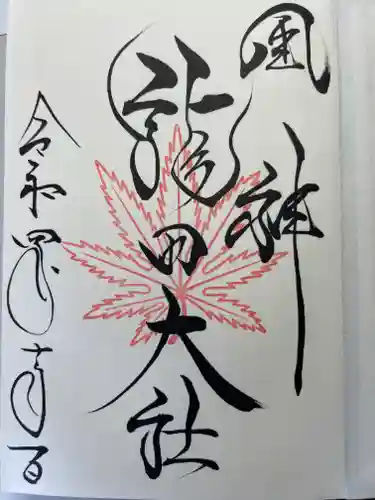 風神
龍田大社
令和四年十一月一日